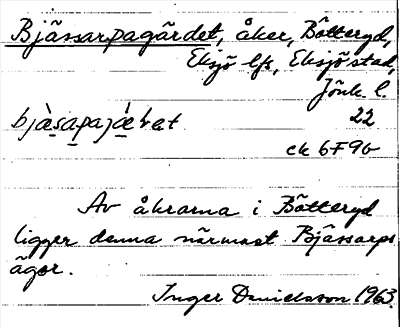 Bjässarpagärdet, åker, Bötteryd,
Eksjö lfs, Eksjö stad,
Jönk. l.
22
ck 6F9b
Av åkrarna i Bötteryd
ligger denna närmast Bjässarps
ägor.
Inger Danielsson 1963.